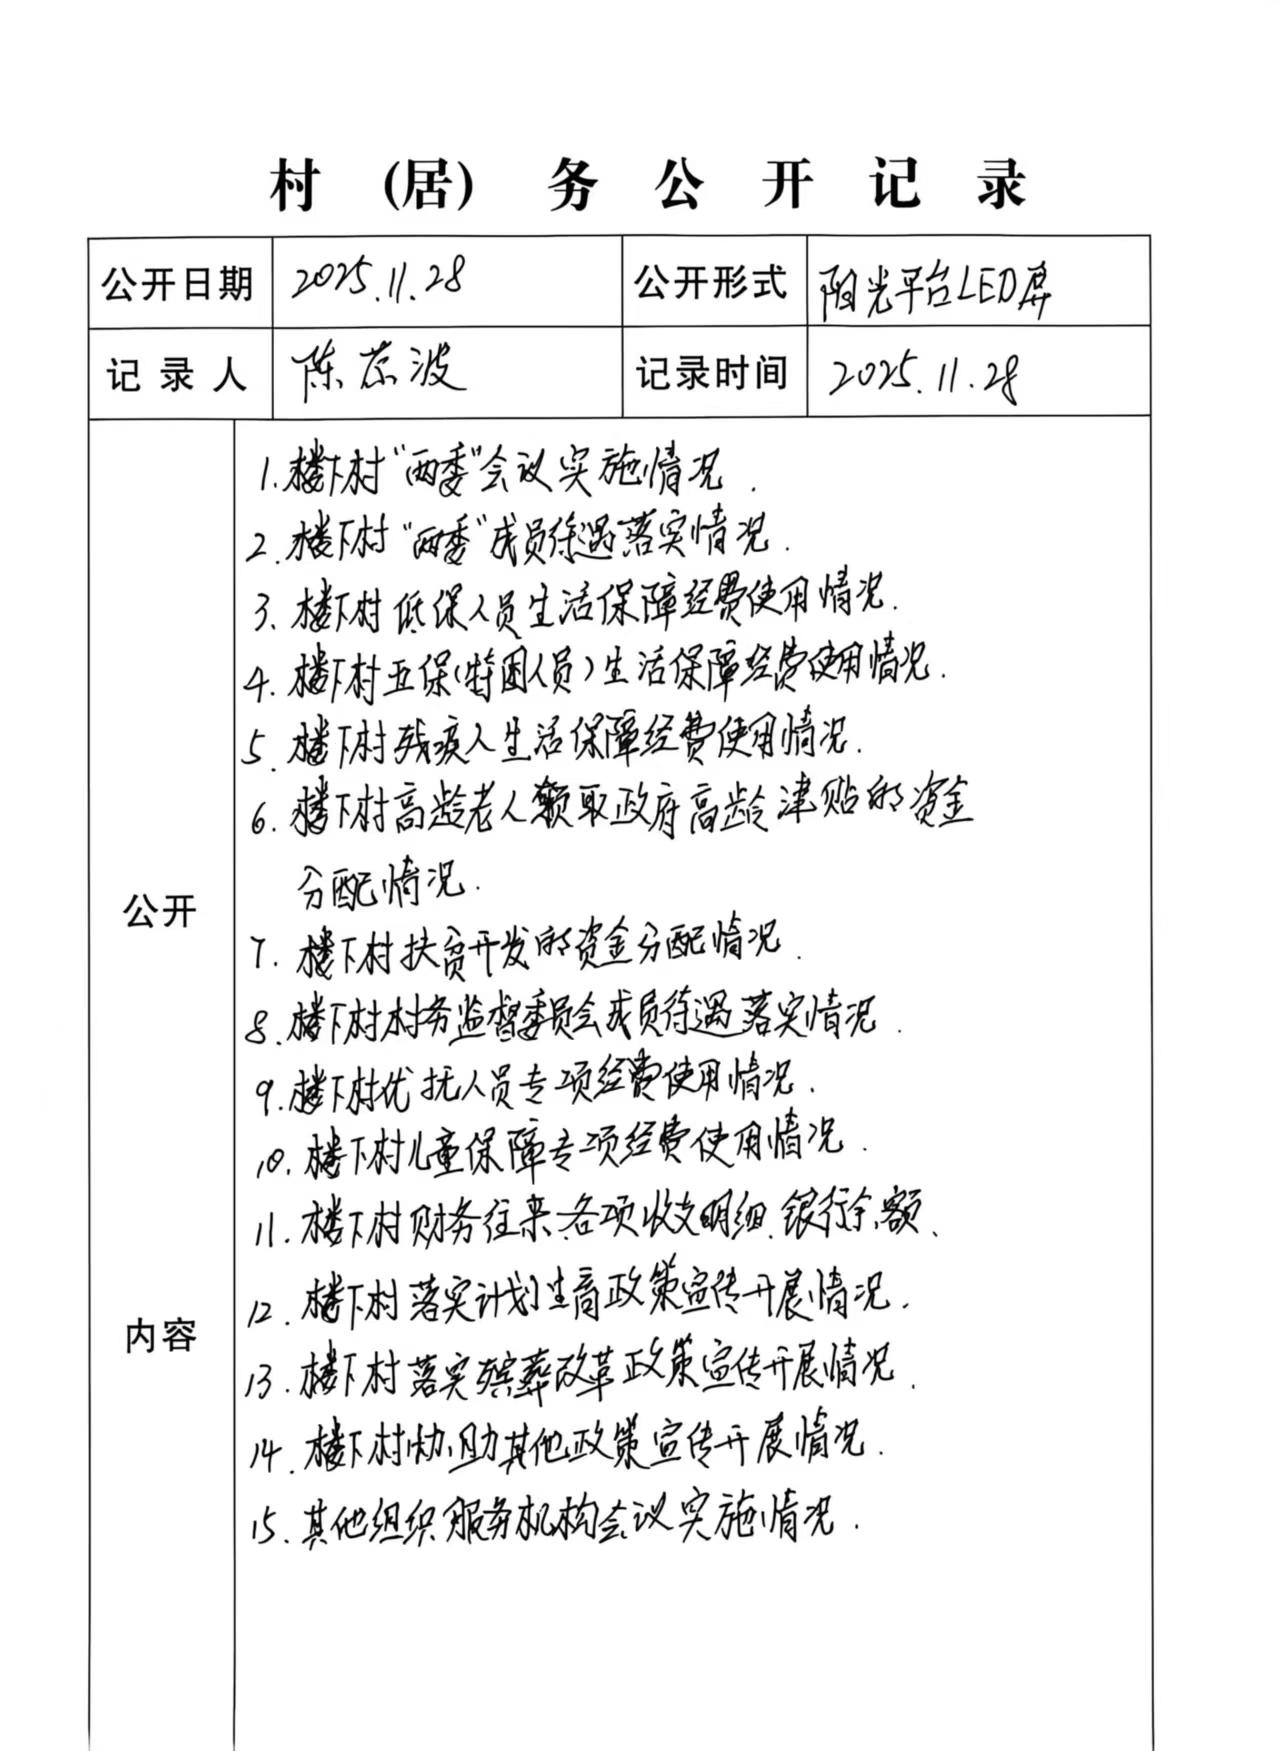 村 (居) 务 公 开 记 录
公开日期 2025.11.28 公开形式 阳光平台LED屏
记录人 陈 波 记录时间 2025.11.28
公开内容
1.楼下村“两委”会议实施情况.
2.楼下村“两委”成员待遇落实情况.
3.楼下村低保人员生活保障经费使用情况.
4.楼下村五保(特困人员)生活保障经费使用情况.
5.楼下村残疾人生活保障经费使用情况.
6.楼下村高龄老人领取政府高龄津贴的资金
分配情况.
7.楼下村扶贫开发的资金分配情况.
8.楼下村村务监督委员会成员待遇落实情况.
9.楼下村优抚人员专项经费使用情况.
10.楼下村儿童保障专项经费使用情况.
11.楼下村财务往来、各项收支明细、银行余额、
12.楼下村落实计划生育政策宣传开展情况.
13.楼下村落实殡葬改革政策宣传开展情况.
14.楼下村协助其他政策宣传开展情况.
15.其他组织服务机构会议实施情况.